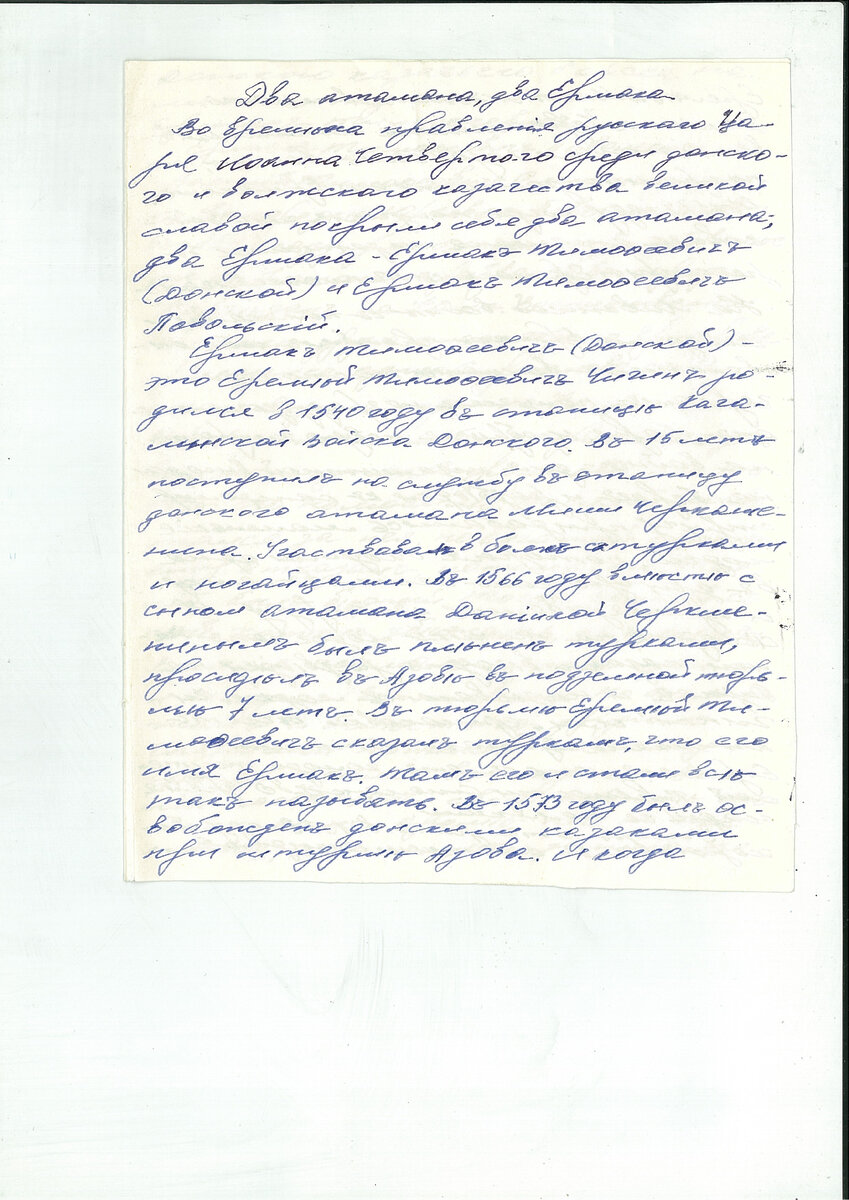 Два атамана, два Ермака
Во времена правленiя русского Ца-
ря Иоанна Четвертого среди донско-
го и волжского казачества великой
славой покрыли себя два атамана,
два Ермака - Ермакъ Тимоѳеевичъ
(Донской) и Ермакъ Тимоѳеевичъ
Повольскiй.
Ермакъ Тимоѳеевичъ (Донской) -
это Еремѣй Тимоѳеевичъ Чигинъ ро-
дился в 1540 году въ станицѣ Кага-
линской Войска Донского. Въ 15 летъ
поступилъ на службу въ станицу
донского атамана Миши Черкаше-
нина. Участвовалъ в бояхъ с турками
и ногайцами. Въ 1566 году вмѣстѣ с
сыном атамана Данiилой Черкаше-
нинымъ былъ плѣненъ турками,
просидѣлъ въ Азовѣ въ подземной тюрь-
мѣ 7 летъ. Въ тюрьмѣ Еремѣй Ти-
моѳеевичъ сказалъ туркамъ, что его
имя Ермакъ. Тамъ его и стали всѣ
такъ называть. Въ 1573 году былъ ос-
вобожденъ донскими казаками
при штурмѣ Азова. И когда